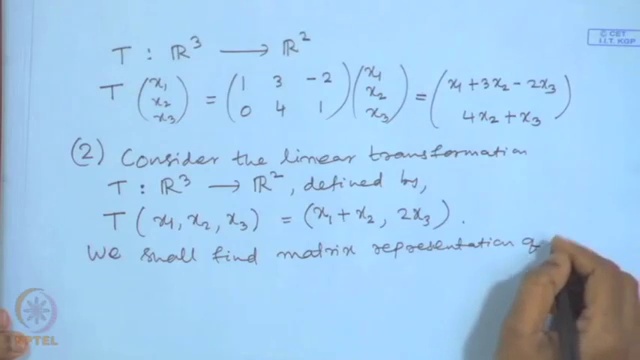 © CET
I.I.T. KGP
T : ℝ³ ⟶ ℝ²
T (x₁ x₂ x₃) = (1 3 -2 0 4 1) (x₁ x₂ x₃) = (x₁ + 3x₂ - 2x₃ 4x₂ + x₃)
(2) Consider the linear transformation
T : ℝ³ ⟶ ℝ², defined by,
T (x₁, x₂, x₃) = (x₁ + x₂, 2x₃).
We shall find matrix representation of
NPTEL